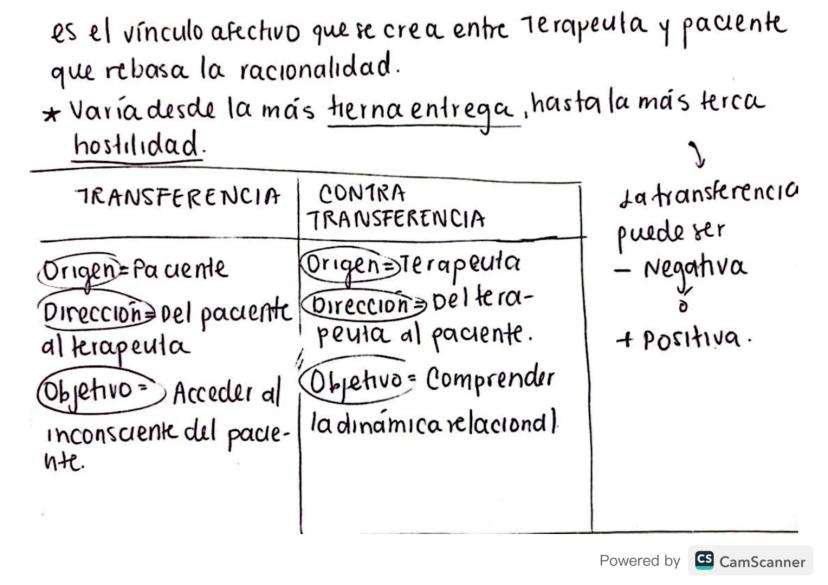 es el vínculo afectivo que se crea entre Terapeuta y paciente
que rebasa la racionalidad.
* Varía desde la más tierna entrega, hasta la más terca
hostilidad.
TRANSFERENCIA
Origen = Paciente
Dirección = Del paciente
al terapeuta
Objetivo = Acceder al
inconsciente del pacie-
nte.
CONTRA
TRANSFERENCIA
Origen = Terapeuta
Dirección = Del tera-
peuta al paciente.
Objetivo = Comprender
la dinámica relacional
La transferencia
puede ser
- Negativa
o
+ Positiva.
Powered by CS CamScanner